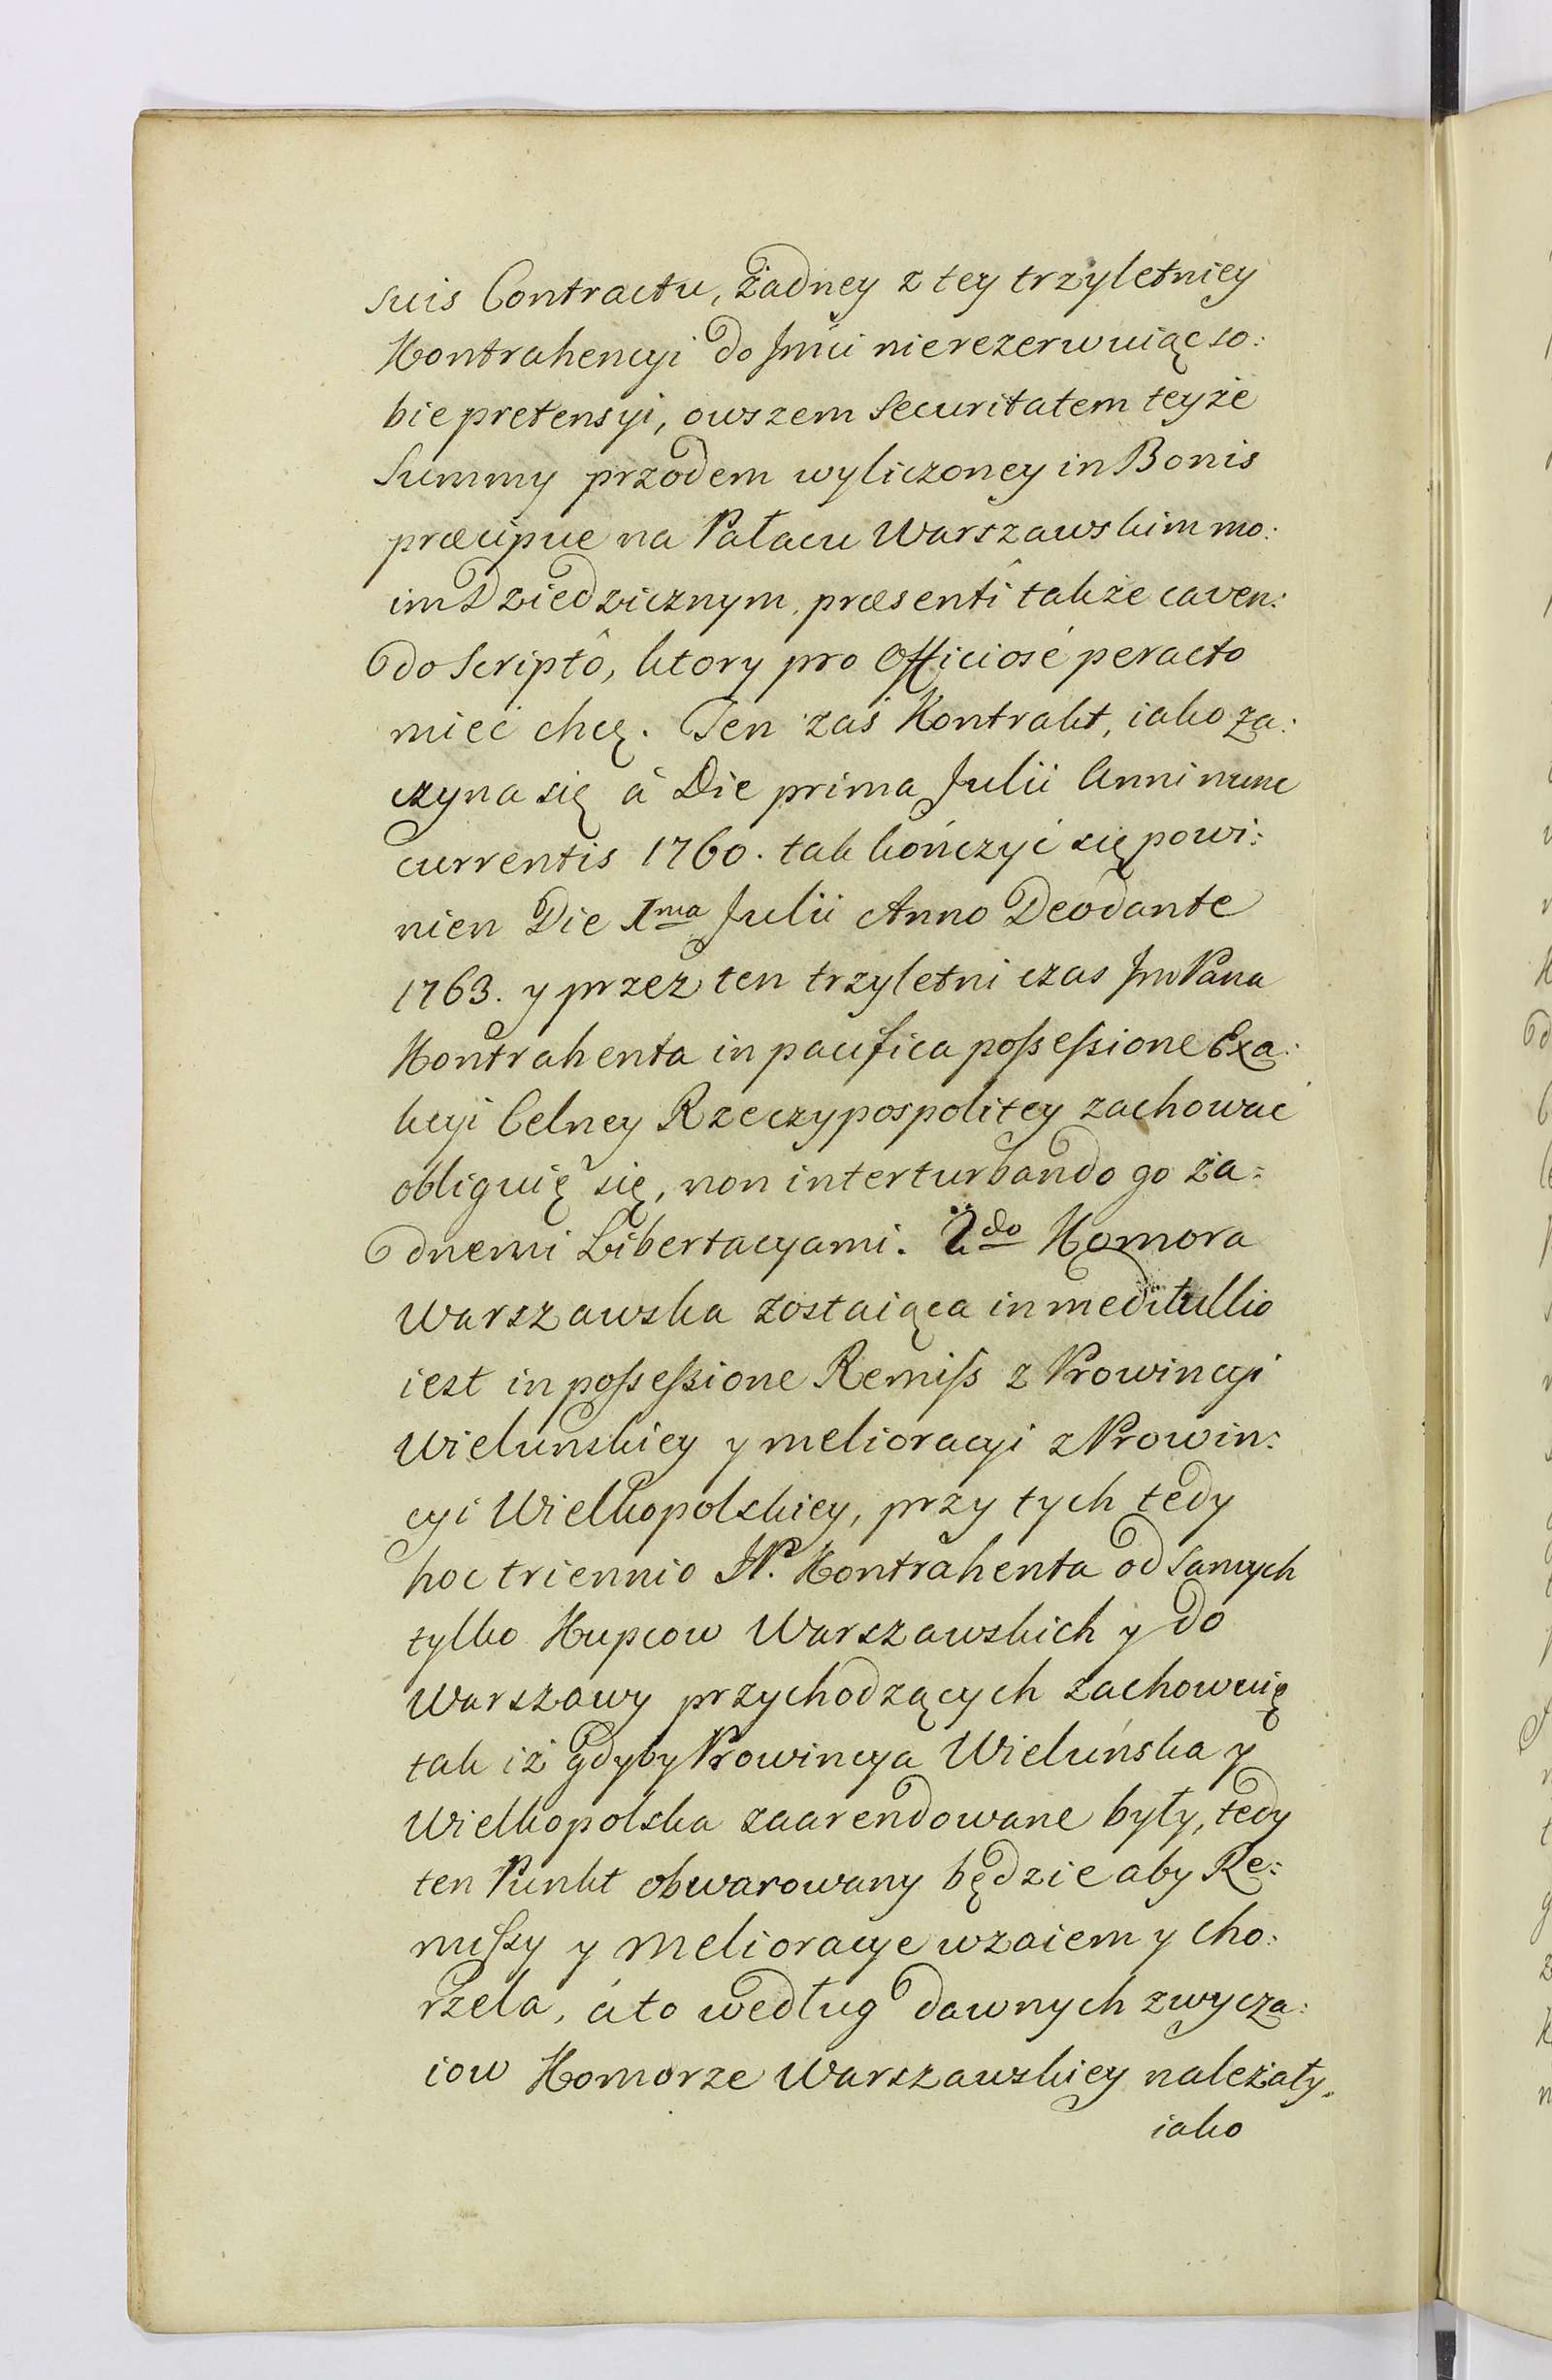 suis Contractu, żadney z tey trzyletniey
Kontrahencyi do Jmći nierezerwuiąc so:
bie pretensyi, owszem Securitatem teyże
Summy przodem wyliczoney in Bonis
præcipue na Pałacu Warszawskim mo:
im Dziedzicznym, præsentî także caven:
do Scriptô, ktory pro Officiosé peracto
mieć chcę. Ten zaś Kontrakt, iako za:
czyna się à Die prima Julii Anni nunc
currentis 1760. tak kończyć się powi:
nien Die 1ma Julii Anno Deodante
1763. y przez ten trzyletni czas Jm Pana
Kontrahenta in pacifica possessione Exa:
kcyi Celney Rzeczypospolitey zachować
obliguię się, non interturbando go ża:
dnemi Libertacyami. 2do Komora
Warszawska zostaiąca in meditullio
iest in possessione Remiss z Prowincyi
Wielunskiey y melioracyi z Prowin:
cyi Wielkopolskiey, przy tych tedy
hoc triennio JP. Kontrahenta od samych
tylko Kupcow Warszawskich y do
Warszawy przychodzących zachowuię
tak iż gdyby Prowincya Wieluńska y
Wielkopolska zaarendowane były, tedy
ten Punkt obwarowany będzie aby Re:
missy y Melioracye wzaiem y Cho:
rzela, áto według dawnych zwycza:
iow Komorze Warszawskiey należały.
iako